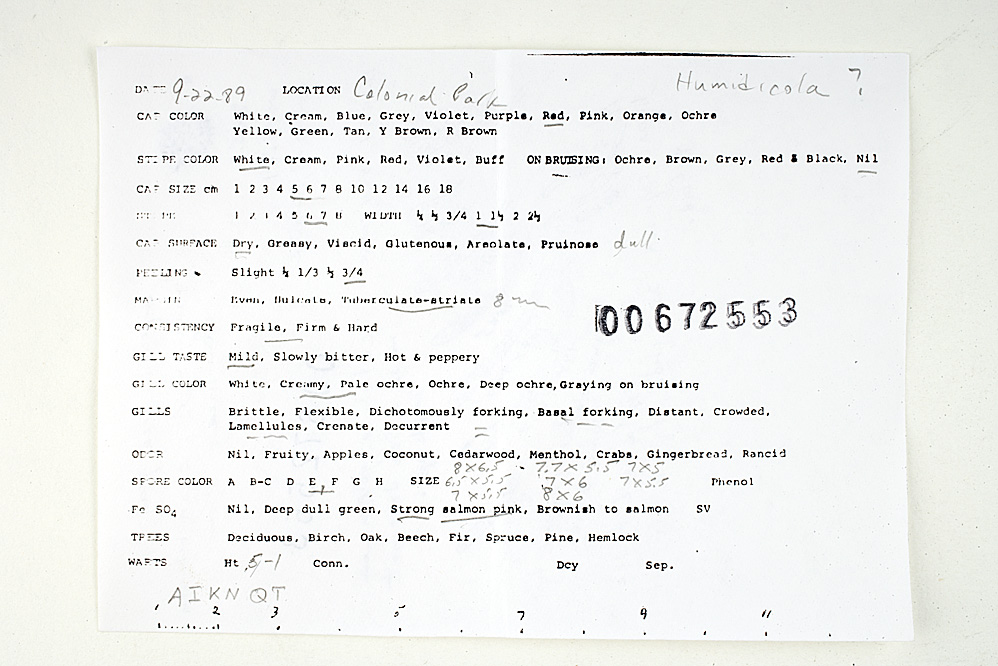 DATE 9-22-89 LOCATION Colonial Park Humidicola ?
CAP COLOR White, Cream, Blue, Grey, Violet, Purple, Red, Pink, Orange, Ochre
Yellow, Green, Tan, Y Brown, R Brown
STIPE COLOR White, Cream, Pink, Red, Violet, Buff ON BRUISING: Ochre, Brown, Grey, Red & Black, Nil
CAP SIZE cm 1 2 3 4 5 6 7 8 10 12 14 16 18
1 2 3 4 5 6 7 8 WIDTH ¼ ½ 3/4 1 1½ 2 2½
CAP SURFACE Dry, Greasy, Viscid, Glutenous, Areolate, Pruinose dull
PEELING Slight ¼ 1/3 ½ 3/4
MARGIN Even, Sulcate, Tuberculate-striate 8 m
00672553
CONSISTENCY Fragile, Firm & Hard
GILL TASTE Mild, Slowly bitter, Hot & peppery
GILL COLOR White, Creamy, Pale ochre, Ochre, Deep ochre, Graying on bruising
GILLS Brittle, Flexible, Dichotomously forking, Basal forking, Distant, Crowded,
Lamellules, Crenate, Decurrent
ODOR Nil, Fruity, Apples, Coconut, Cedarwood, Menthol, Crabs, Gingerbread, Rancid
8X6,5 - 7.7X5.5 7X5
SPORE COLOR A B-C D E F G H SIZE 6,5X5,5 7X6 7X5.5 Phenol
7X5,5 8X6
Fe SO4 Nil, Deep dull green, Strong salmon pink, Brownish to salmon SV
TREES Deciduous, Birch, Oak, Beech, Fir, Spruce, Pine, Hemlock
WARTS Ht ,5-1 Conn. Dcy Sep.
AIKNQT
1 2 3 5 7 9 11